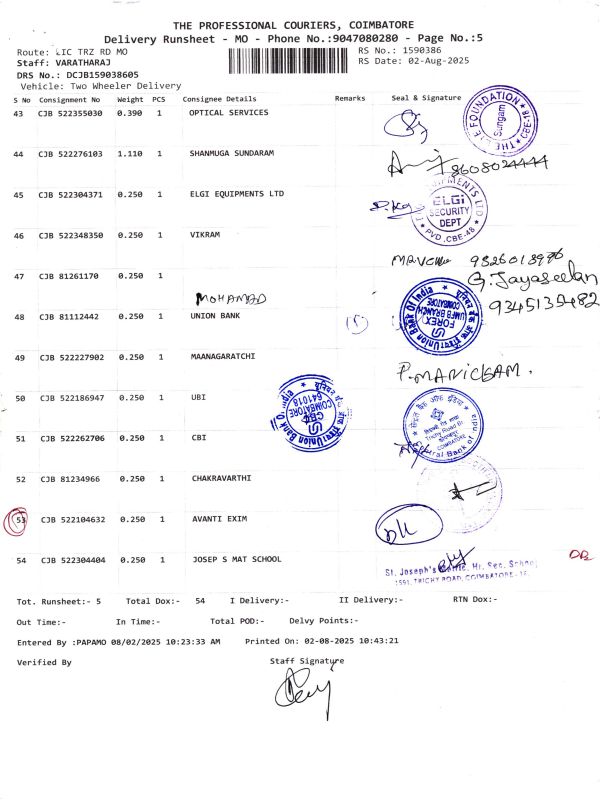 THE PROFESSIONAL COURIERS, COIMBATORE
Delivery Runsheet - MO - Phone No.:9047080280 - Page No.:5
Route: LIC TRZ RD MO
RS No.: 1590386
Staff: VARATHARAJ
RS Date: 02-Aug-2025
DRS No.: DCJB159038605
Vehicle: Two Wheeler Delivery
S No Consignment No Weight PCS Consignee Details Remarks Seal & Signature
43 CJB 522355030 0.390 1 OPTICAL SERVICES
THE EYE FOUNDATION
Sungam
CBE-18
44 CJB 522276103 1.110 1 SHANMUGA SUNDARAM
8608024444
45 CJB 522304371 0.250 1 ELGI EQUIPMENTS LTD
ELGI
SECURITY
DEPT
PVD. CBE-48
46 CJB 522348350 0.250 1 VIKRAM
47 CJB 81261170 0.250 1
G. Jayaseelan
MOHAMAD
9345135482
48 CJB 81112442 0.250 1 UNION BANK
(5)
Union Bank Of India
FOREX
UMFB BRANCH
COIMBATORE
49 CJB 522227902 0.250 1 MAANAGARATCHI
P. MANICKAM.
50 CJB 522186947 0.250 1 UBI
Union Bank Of India
COIMBATORE
641018
51 CJB 522262706 0.250 1 CBI
Trichy Road Br
COIMBATORE
52 CJB 81234966 0.250 1 CHAKRAVARTHI
53 CJB 522104632 0.250 1 AVANTI EXIM
54 CJB 522304404 0.250 1 JOSEP S MAT SCHOOL
DB
St. Joseph's Hr. Sec. School
1591, TRICHY ROAD, COIMBATORE - 18.
Tot. Runsheet:- 5 Total Dox:- 54 I Delivery:- II Delivery:- RTN Dox:-
Out Time:- In Time:- Total POD:- Delvy Points:-
Entered By :PAPAMO 08/02/2025 10:23:33 AM Printed On: 02-08-2025 10:43:21
Verified By Staff Signature